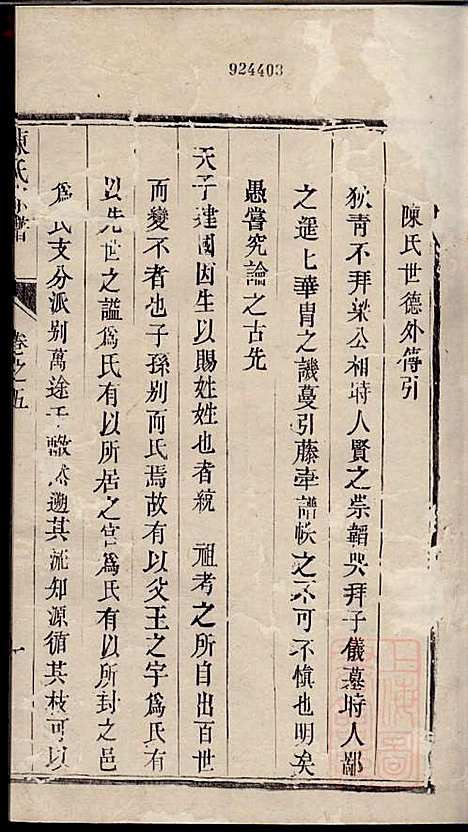 924403
陳氏世德外傳引
狄青不拜梁公相時人賢之崇韜哭拜子儀墓時人鄙
之遥七華冑之譏蔓引藤牽譜帙之不可不慎也明矣
愚嘗究論之古先
天子建國因生以賜姓姓也者統 祖考之所自出百世
而變不者也子孫别而氏焉故有以父王之字爲氏有
以先世之諡爲氏有以所居之官爲氏有以所封之邑
爲氏支分派别萬途千轍 遡其流知源循其枝可以
陳氏 譜
卷之五
上海